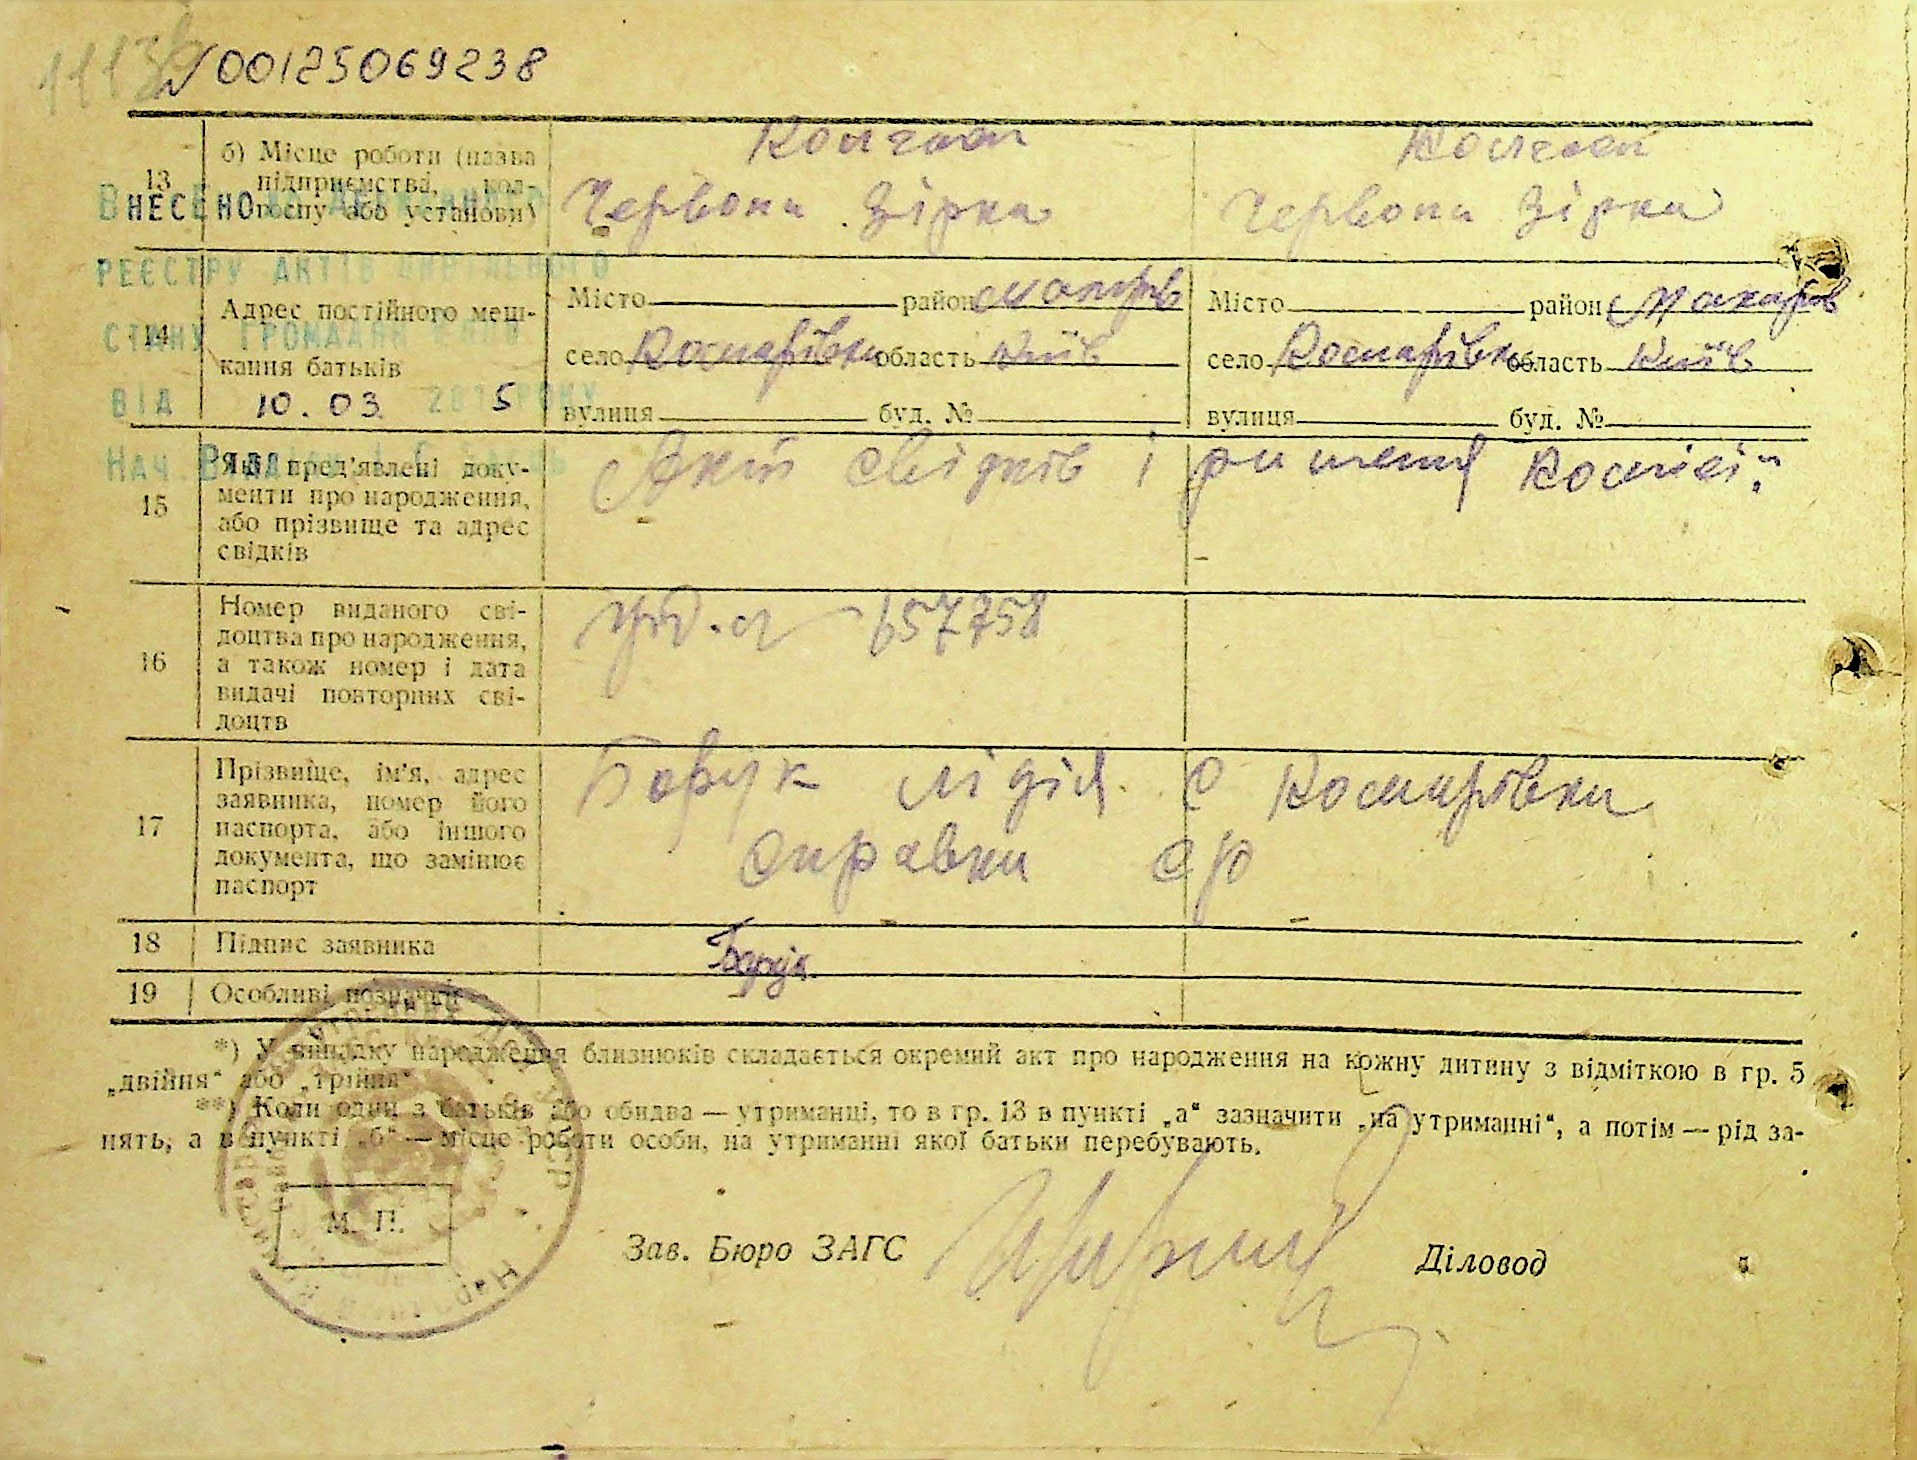 00125069238
13
б) Місце роботи (назва
підприємства, кол-
госпу або установи)
Колгосп
Червона Зірка
Колгосп
Червона Зірка
ВНЕСЕНО ДО ДЕРЖАВНОГО
РЕЄСТРУ АКТІВ ЦИВІЛЬНОГО
СТАНУ ГРОМАДЯН
ВІД 10.03. 2015 РОКУ
14
Адрес постійного меш-
кання батьків
Місто район Макарів
село Комарівка область Київ
вулиця буд. №
Місто район Макарів
село Комарівка область Київ
вулиця буд. №
15
Які пред’явлені доку-
менти про народження,
або прізвище та адрес
свідків
Акт свідків і рішення комісії
16
Номер виданого сві-
доцтва про народження,
а також номер і дата
видачі повторних сві-
доцтв
657758
17
Прізвище, ім’я, адрес
заявника, номер його
паспорта, або іншого
документа, що замінює
паспорт
Борук Лідія с Комарівки
справки с/р
18
Підпис заявника
19
Особливі позначки
*) У випадку народження близнюків складається окремий акт про народження на кожну дитину з відміткою в гр. 5
„двійня“ або „трійня“
**) Коли один з батьків або обидва — утриманці, то в гр. 13 в пункті „а“ зазначити „на утриманні“, а потім — рід за-
нять, а в пункті „б“ — місце роботи особи, на утриманні якої батьки перебувають.
М. П.
Зав. Бюро ЗАГС
Діловод